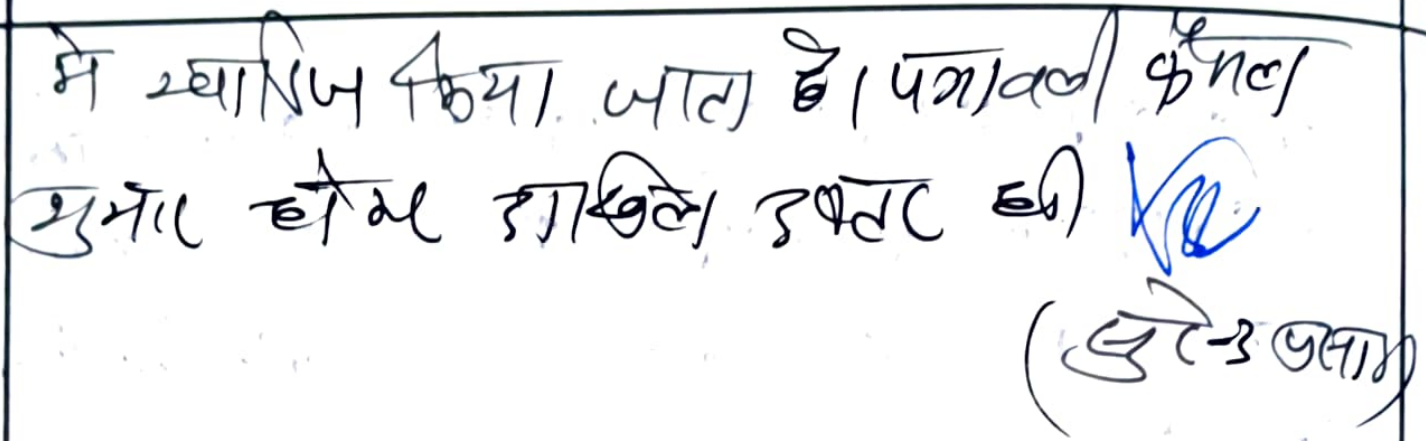 मे खारिज किया जाता है। पत्रावली फैसल
शुमार होकर दाखिल दफ्तर हो
(सुरेन्द्र